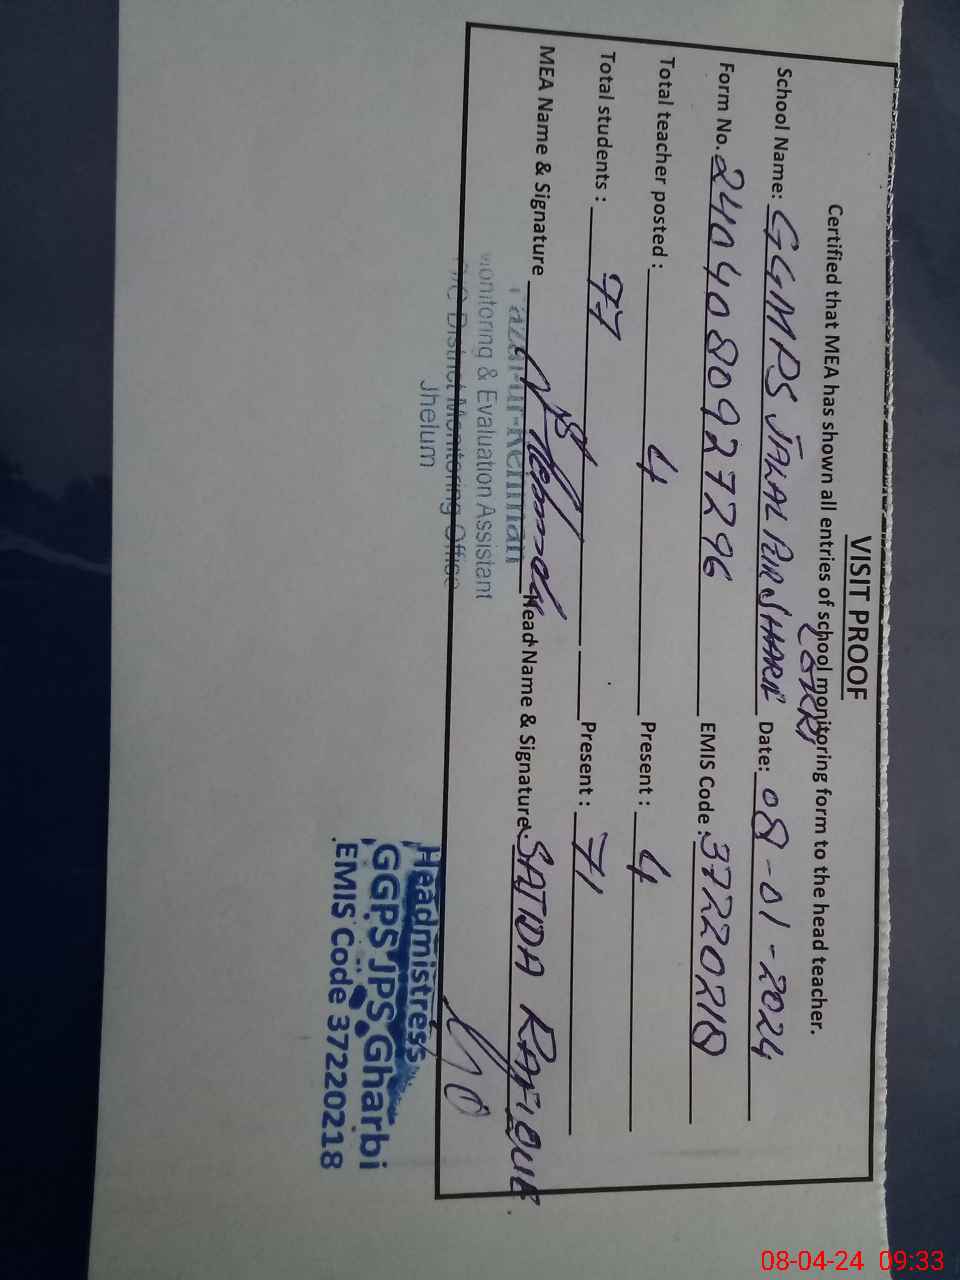 VISIT PROOF
Certified that MEA has shown all entries of school monitoring form to the head teacher.
School Name: GGMPS JALAL PUR SHARIF Date: 08-01-2024
Form No. 2404080927296 EMIS Code: 37220218
Total teacher posted: 4 Present: 4
Total students: 77 Present: 71
MEA Name & Signature Head Name & Signature SAJIDA RAFIQUE
Monitoring & Evaluation Assistant
District Monitoring Office
Jhelum
Headmistress
GGPS JPS Gharbi
EMIS Code 37220218
08-04-24 09:33